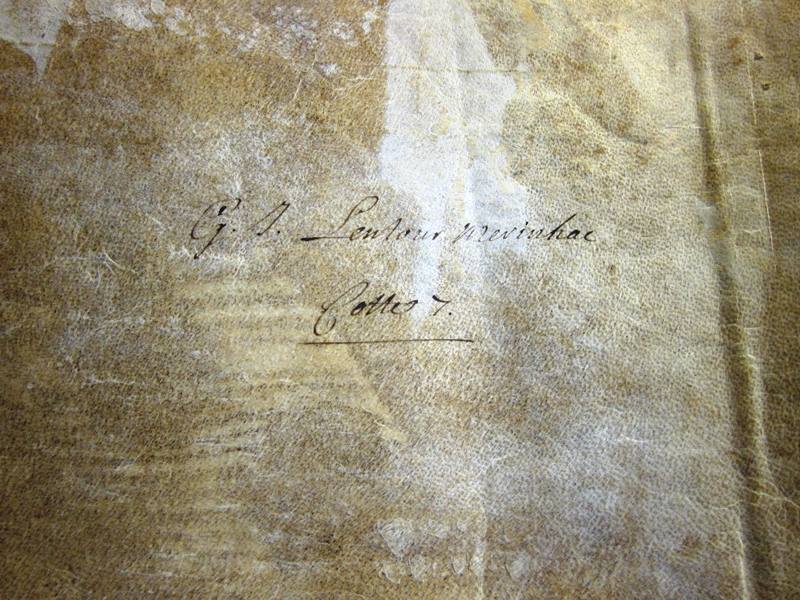 G. J. Lentour mevinhac
Cottes 7.